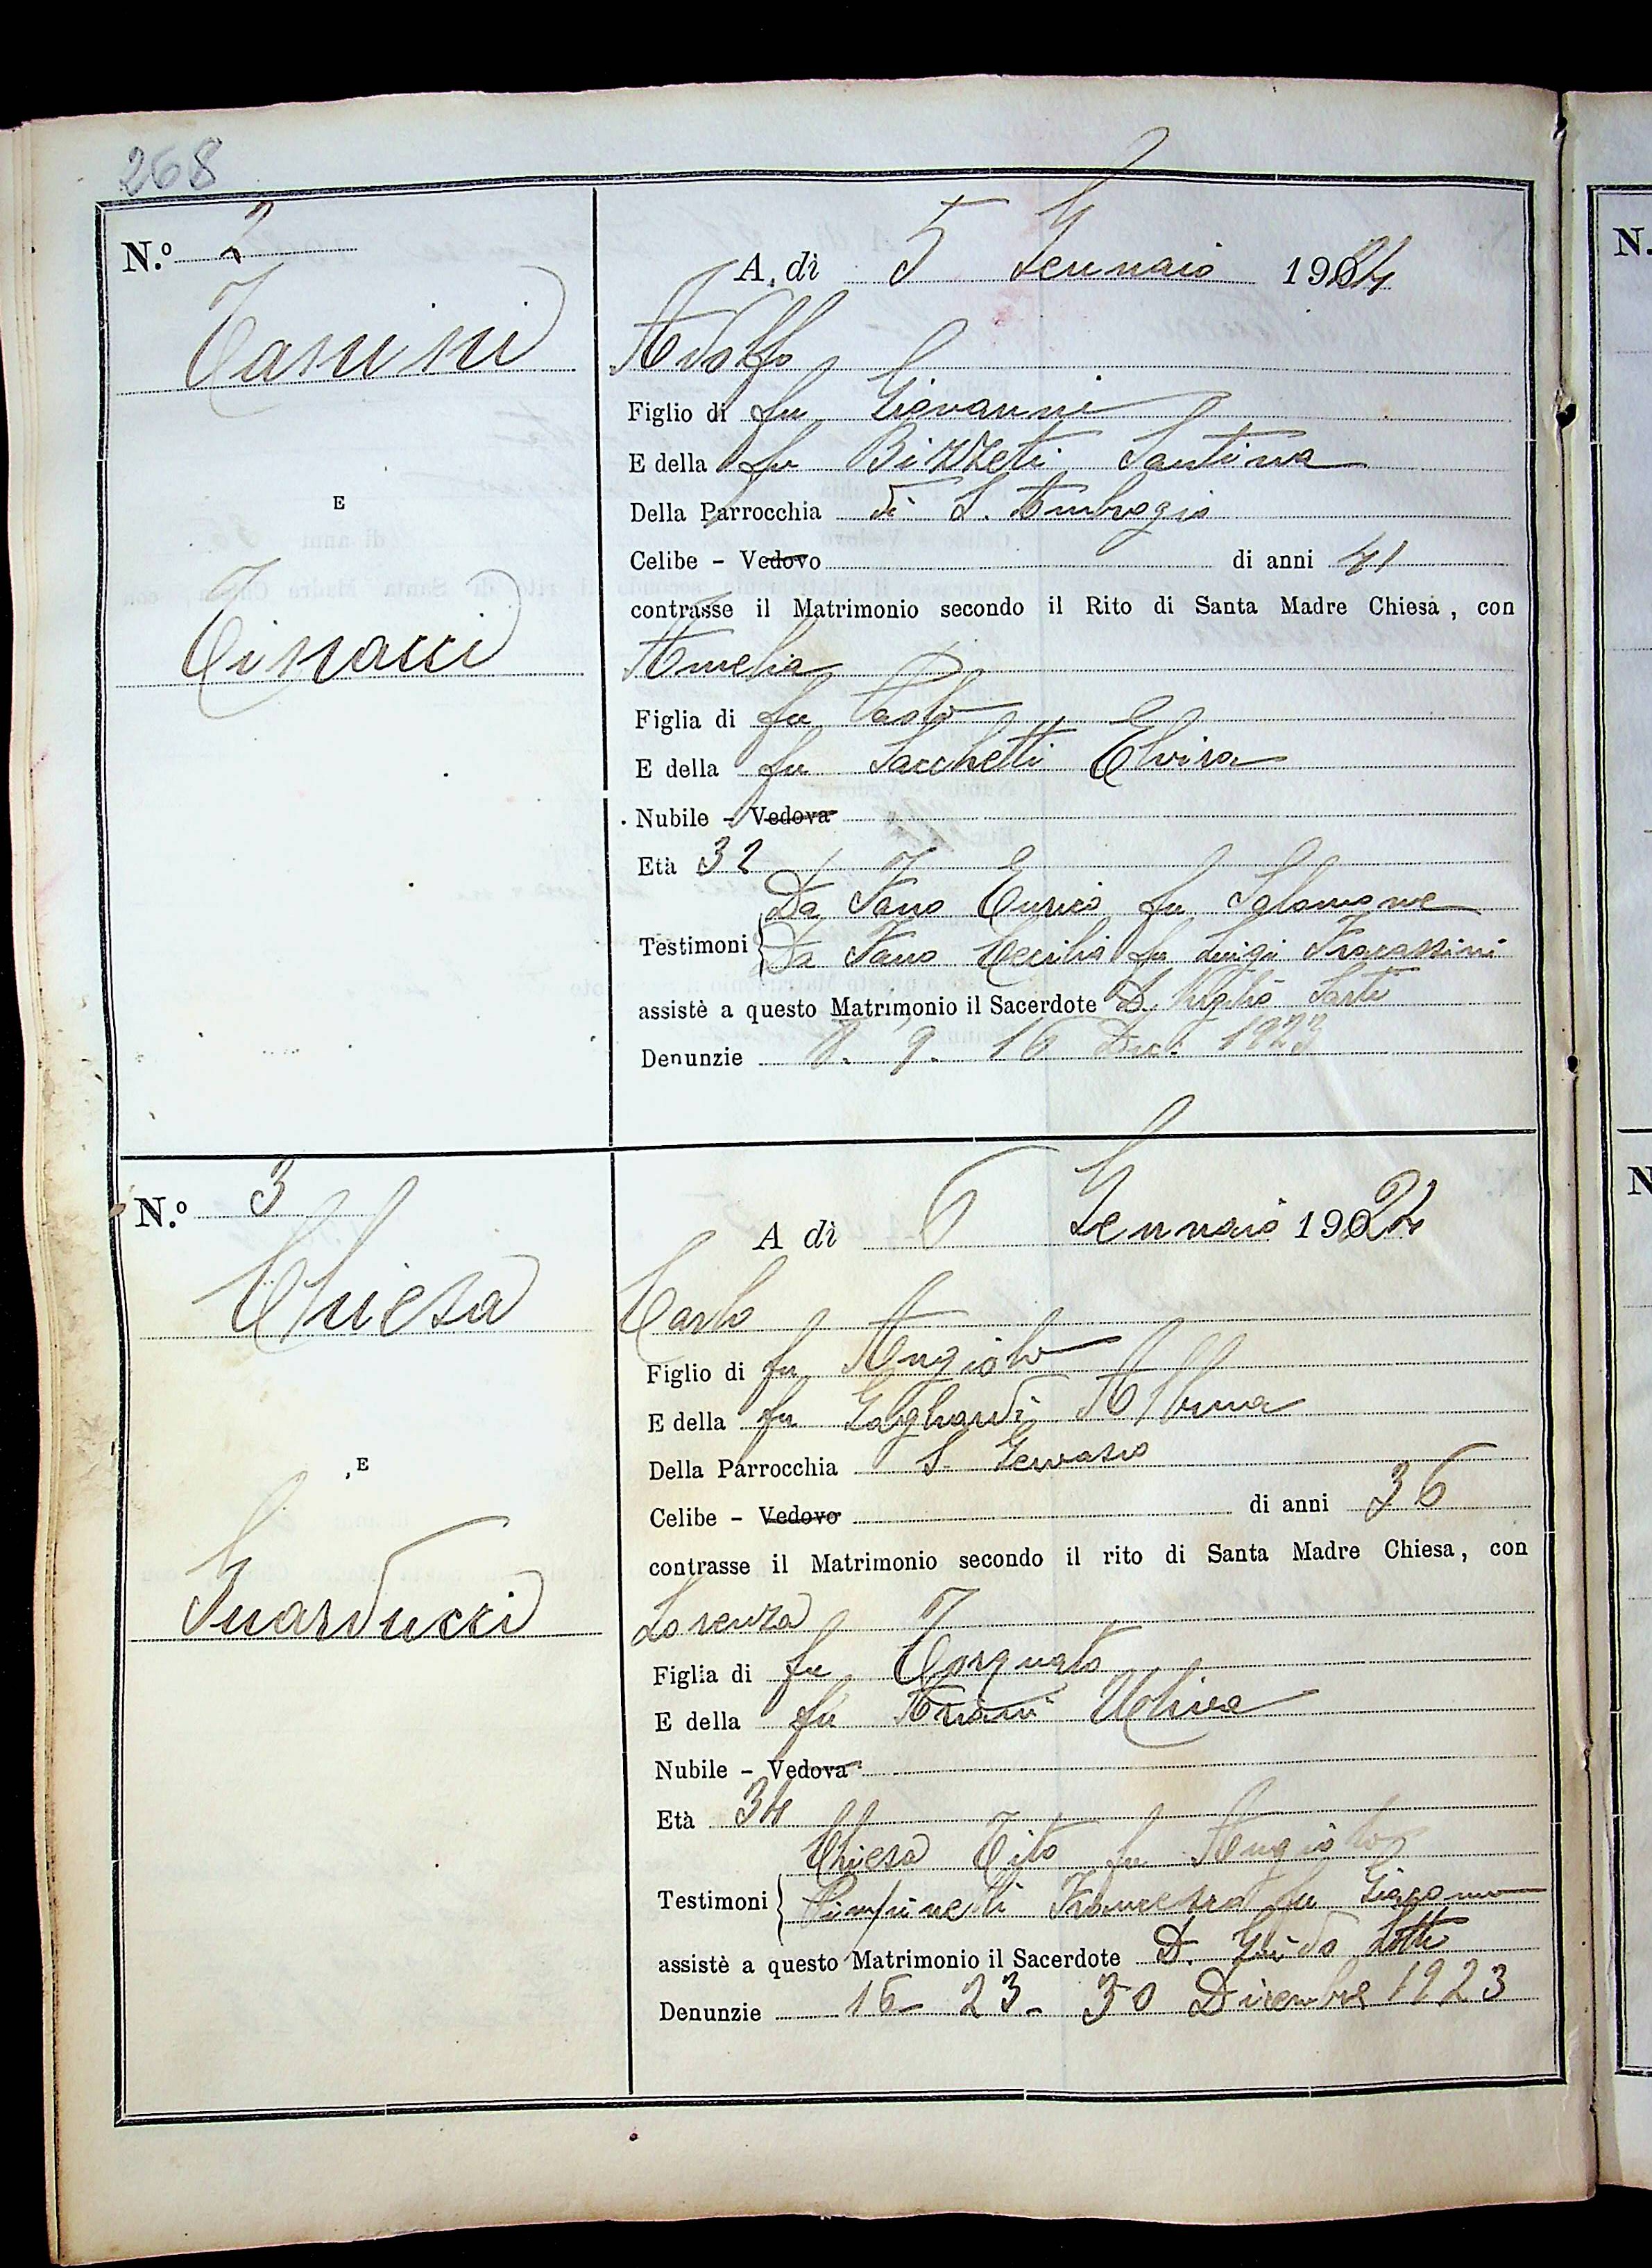 268
N.º 2
A dì 5 Gennaio 1924
Tanini
Adolfo
Figlio di fu Giovanni
E della fu Bizzeti Santina
E
Della Parrocchia di S. Ambrogio
Celibe - Vedovo di anni 41
contrasse il Matrimonio secondo il Rito di Santa Madre Chiesa, con
Tinacci
Amelia
Figlia di fu Carlo
E della fu Sacchetti Elvira
Nubile - Vedova
Età 32
Da Fano Enrico fu Salomone
Testimoni Da Fano Cecilia fu Luigi Fracassini
assistè a questo Matrimonio il Sacerdote D. Sarti
Denunzie 8. 9. 16 Dic. 1923
N.º 3
A dì 6 Gennaio 1924
Chiesa
Carlo
Figlio di fu Angiolo
E della fu Gagliardi Albina
Della Parrocchia S. Gervasio
E
Celibe - Vedovo di anni 36
contrasse il Matrimonio secondo il rito di Santa Madre Chiesa, con
Guarducci
Lorenza
Figlia di fu Torquato
E della fu Uliva
Nubile - Vedova
Età 34
Chiesa Tito fu Angiolo
Testimoni Francesca fu Giacomo
assistè a questo Matrimonio il Sacerdote D. Guido Lotti
Denunzie 16 - 23 - 30 Dicembre 1923
N.
N